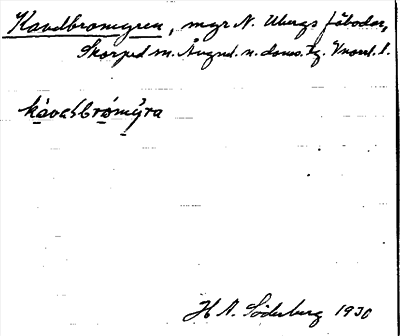 Kavelbromyren, myr N. Ubergs fäbodar,
Skorped sn. Ångml. n. doms. tg. Vnorrl. l.
kávəlbrómy̌ra
H A. Söderberg 1930